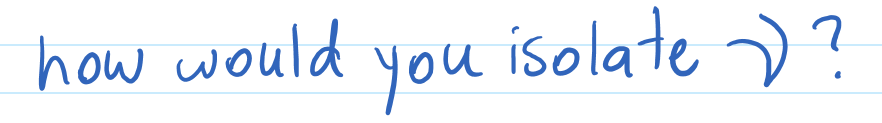 how would you isolate ?